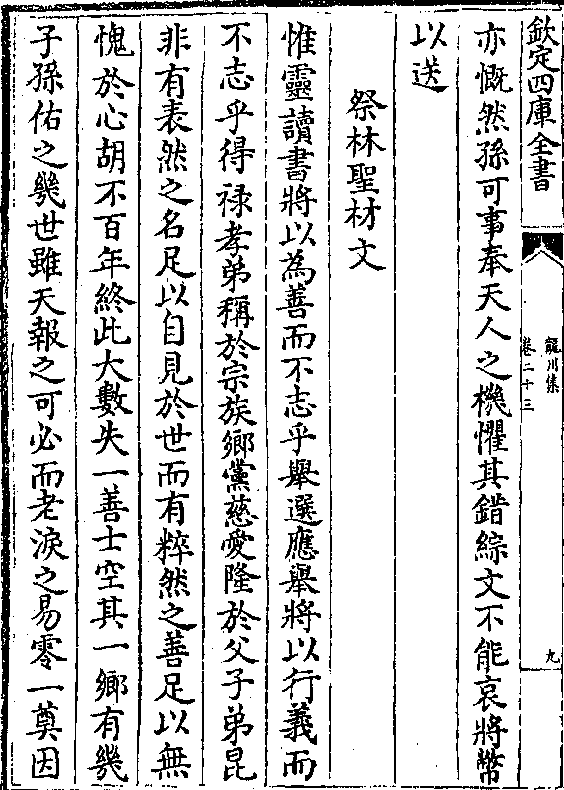 欽定四庫全書
龍川集
卷二十三
九
亦慨然孫可事奉天人之機懼其錯綜文不能哀將幣
以送
祭林聖材文
惟靈讀書將以為善而不志乎舉選應舉將以行義而
不志乎得禄孝弟稱於宗族鄉黨慈愛隆於父子弟昆
非有表然之名足以自見於世而有粹然之善足以無
愧於心胡不百年終此大數失一善士空其一鄉有幾
子孫佑之幾世雖天報之可必而老淚之易零一奠因